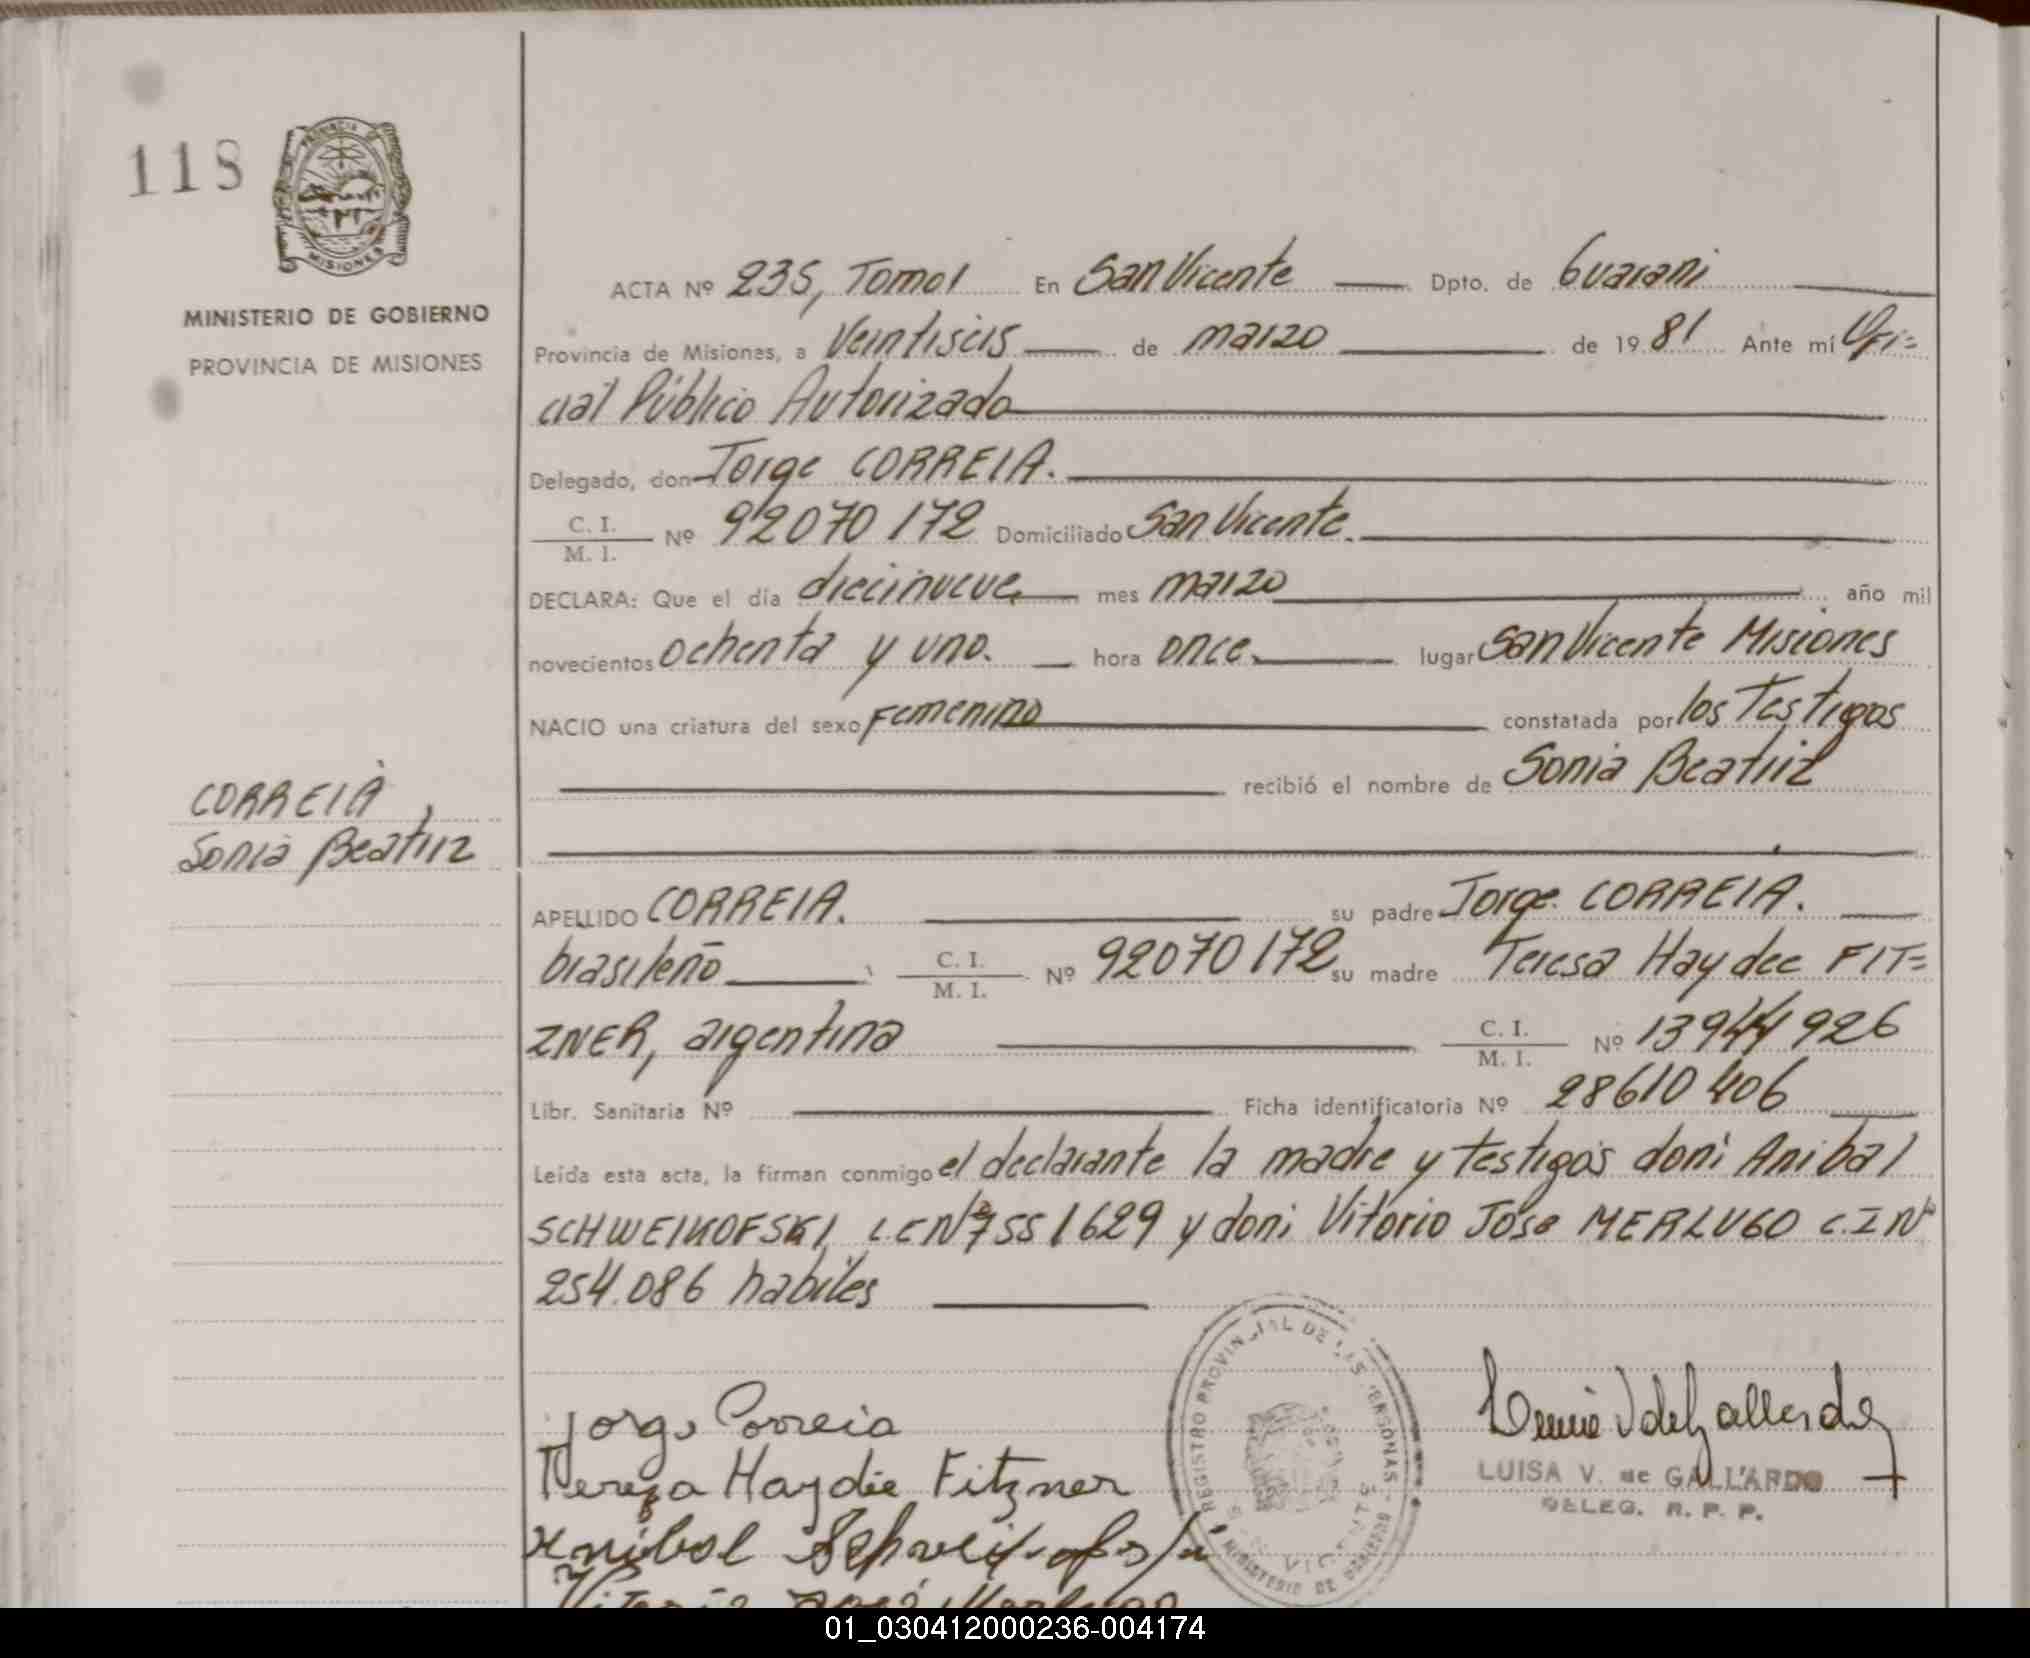 118
PROVINCIA DE
MISIONES
MINISTERIO DE GOBIERNO
PROVINCIA DE MISIONES
ACTA Nº 235, Tomo I En San Vicente Dpto. de Guarani
Provincia de Misiones, a Veintiseis de marzo de 1981 Ante mí Ofi=
cial Público Autorizado
Delegado, don Jorge CORREIA.
C. I.
M. I. Nº 92070172 Domiciliado San Vicente.
DECLARA: Que el día diecinueve mes marzo año mil
novecientos ochenta y uno. hora once. lugar San Vicente Misiones
NACIO una criatura del sexo Femenino constatada por los Testigos
recibió el nombre de Sonia Beatriz
CORREIA,
Sonia Beatriz
APELLIDO CORREIA. su padre Jorge CORREIA.
brasileño C. I.
M. I. Nº 92070172 su madre Teresa Haydee FIT=
ZNER, argentina C. I.
M. I. Nº 13944926
Libr. Sanitaria Nº Ficha identificatoria Nº 28610406
Leída esta acta, la firman conmigo el declarante la madre y testigos doni Anibal
SCHWEIKOFSKI, L.E Nº 7551629 y doni Vitorio Jose MERLUGO C.I Nº
254.086 habiles
Jorge Correia
Tereza Haydée Fitzner
Anibal
Vitorio José Merlugo
REGISTRO PROVINCIAL DE LAS PERSONAS
MINISTERIO DE GOBIERNO
VICENTE
LUISA V. de GALLARDO
DELEG. R. P. P.
01_030412000236-004174